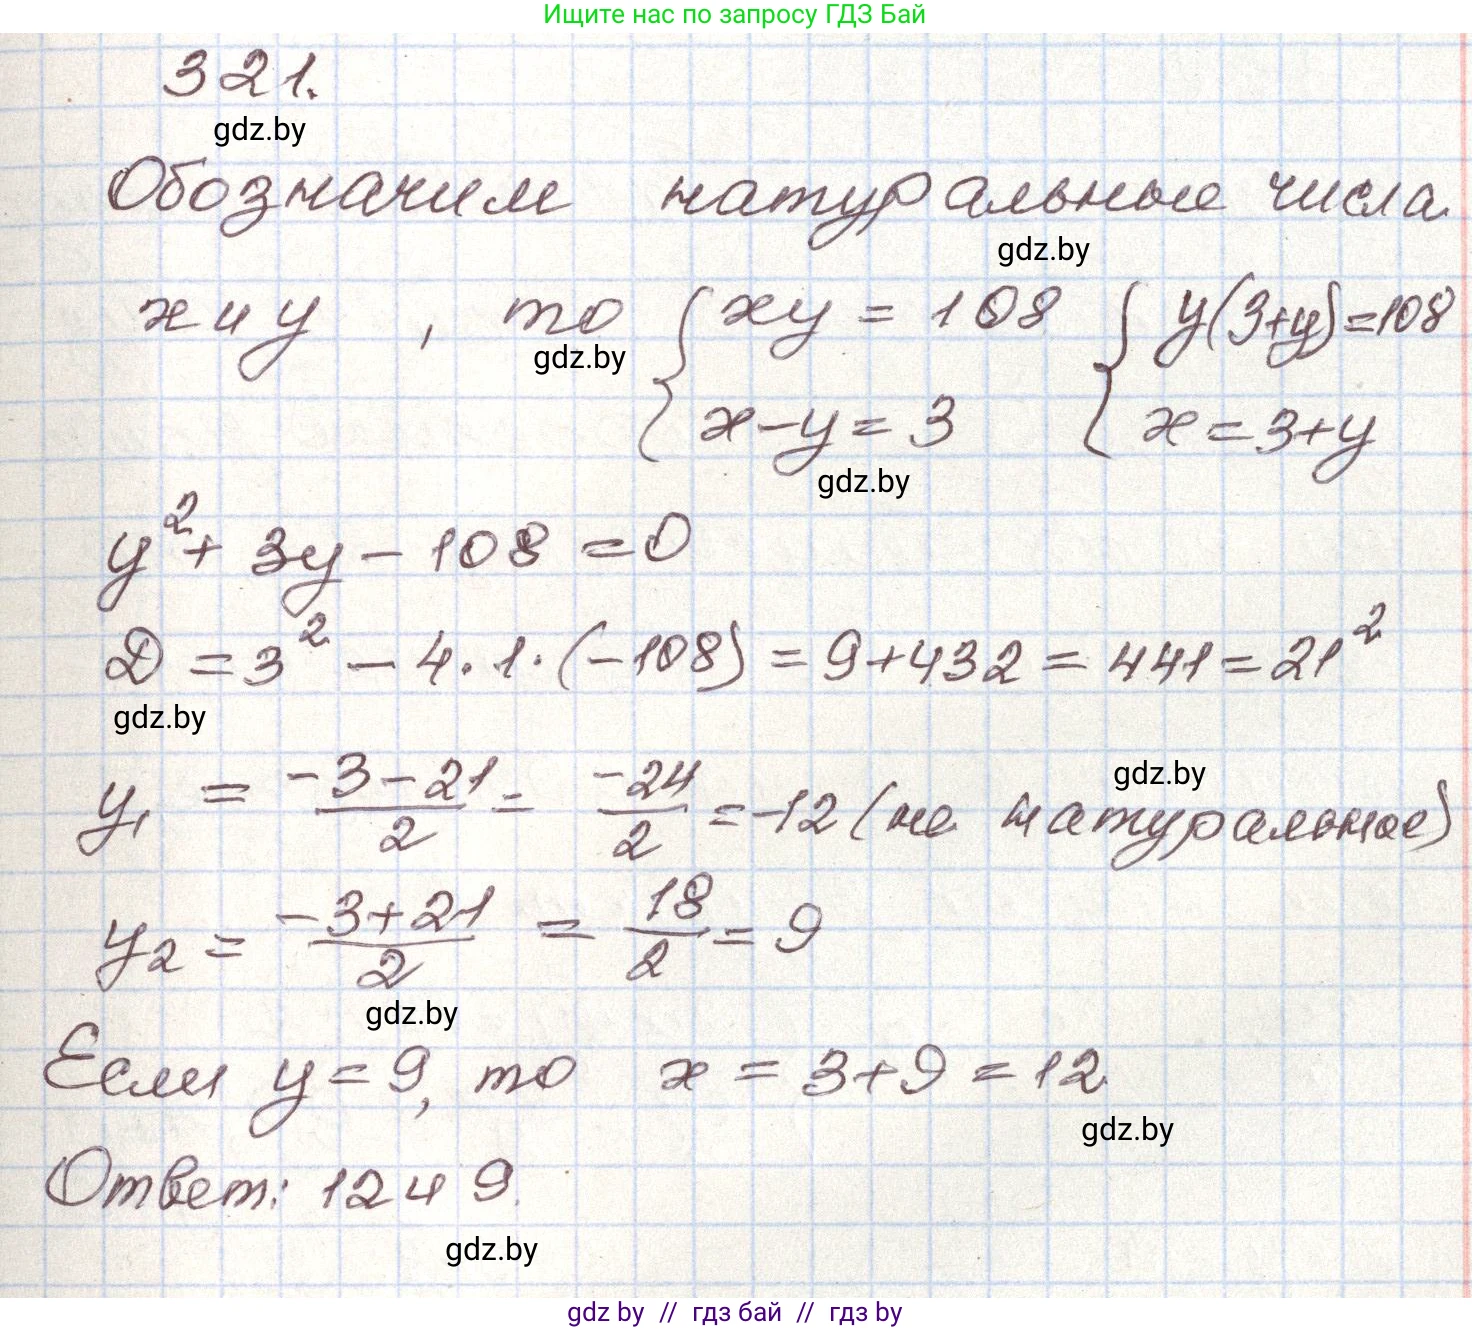 Ищите нас по запросу ГДЗ Бай
321.
gdz.by
Обозначим натуральные числа
gdz.by
x и y , то { xy = 108 { y(3+y)=108
gdz.by
x-y=3 x=3+y
gdz.by
y²+3y-108=0
D=3²-4·1·(-108)=9+432=441=21²
gdz.by
gdz.by
y₁ = (-3-21)/2 = -24/2 = -12 (не натуральное)
y₂ = (-3+21)/2 = 18/2 = 9
gdz.by
Если y=9, то x=3+9=12
gdz.by
Ответ: 12 и 9.
gdz.by
gdz by // гдз бай // гдз by